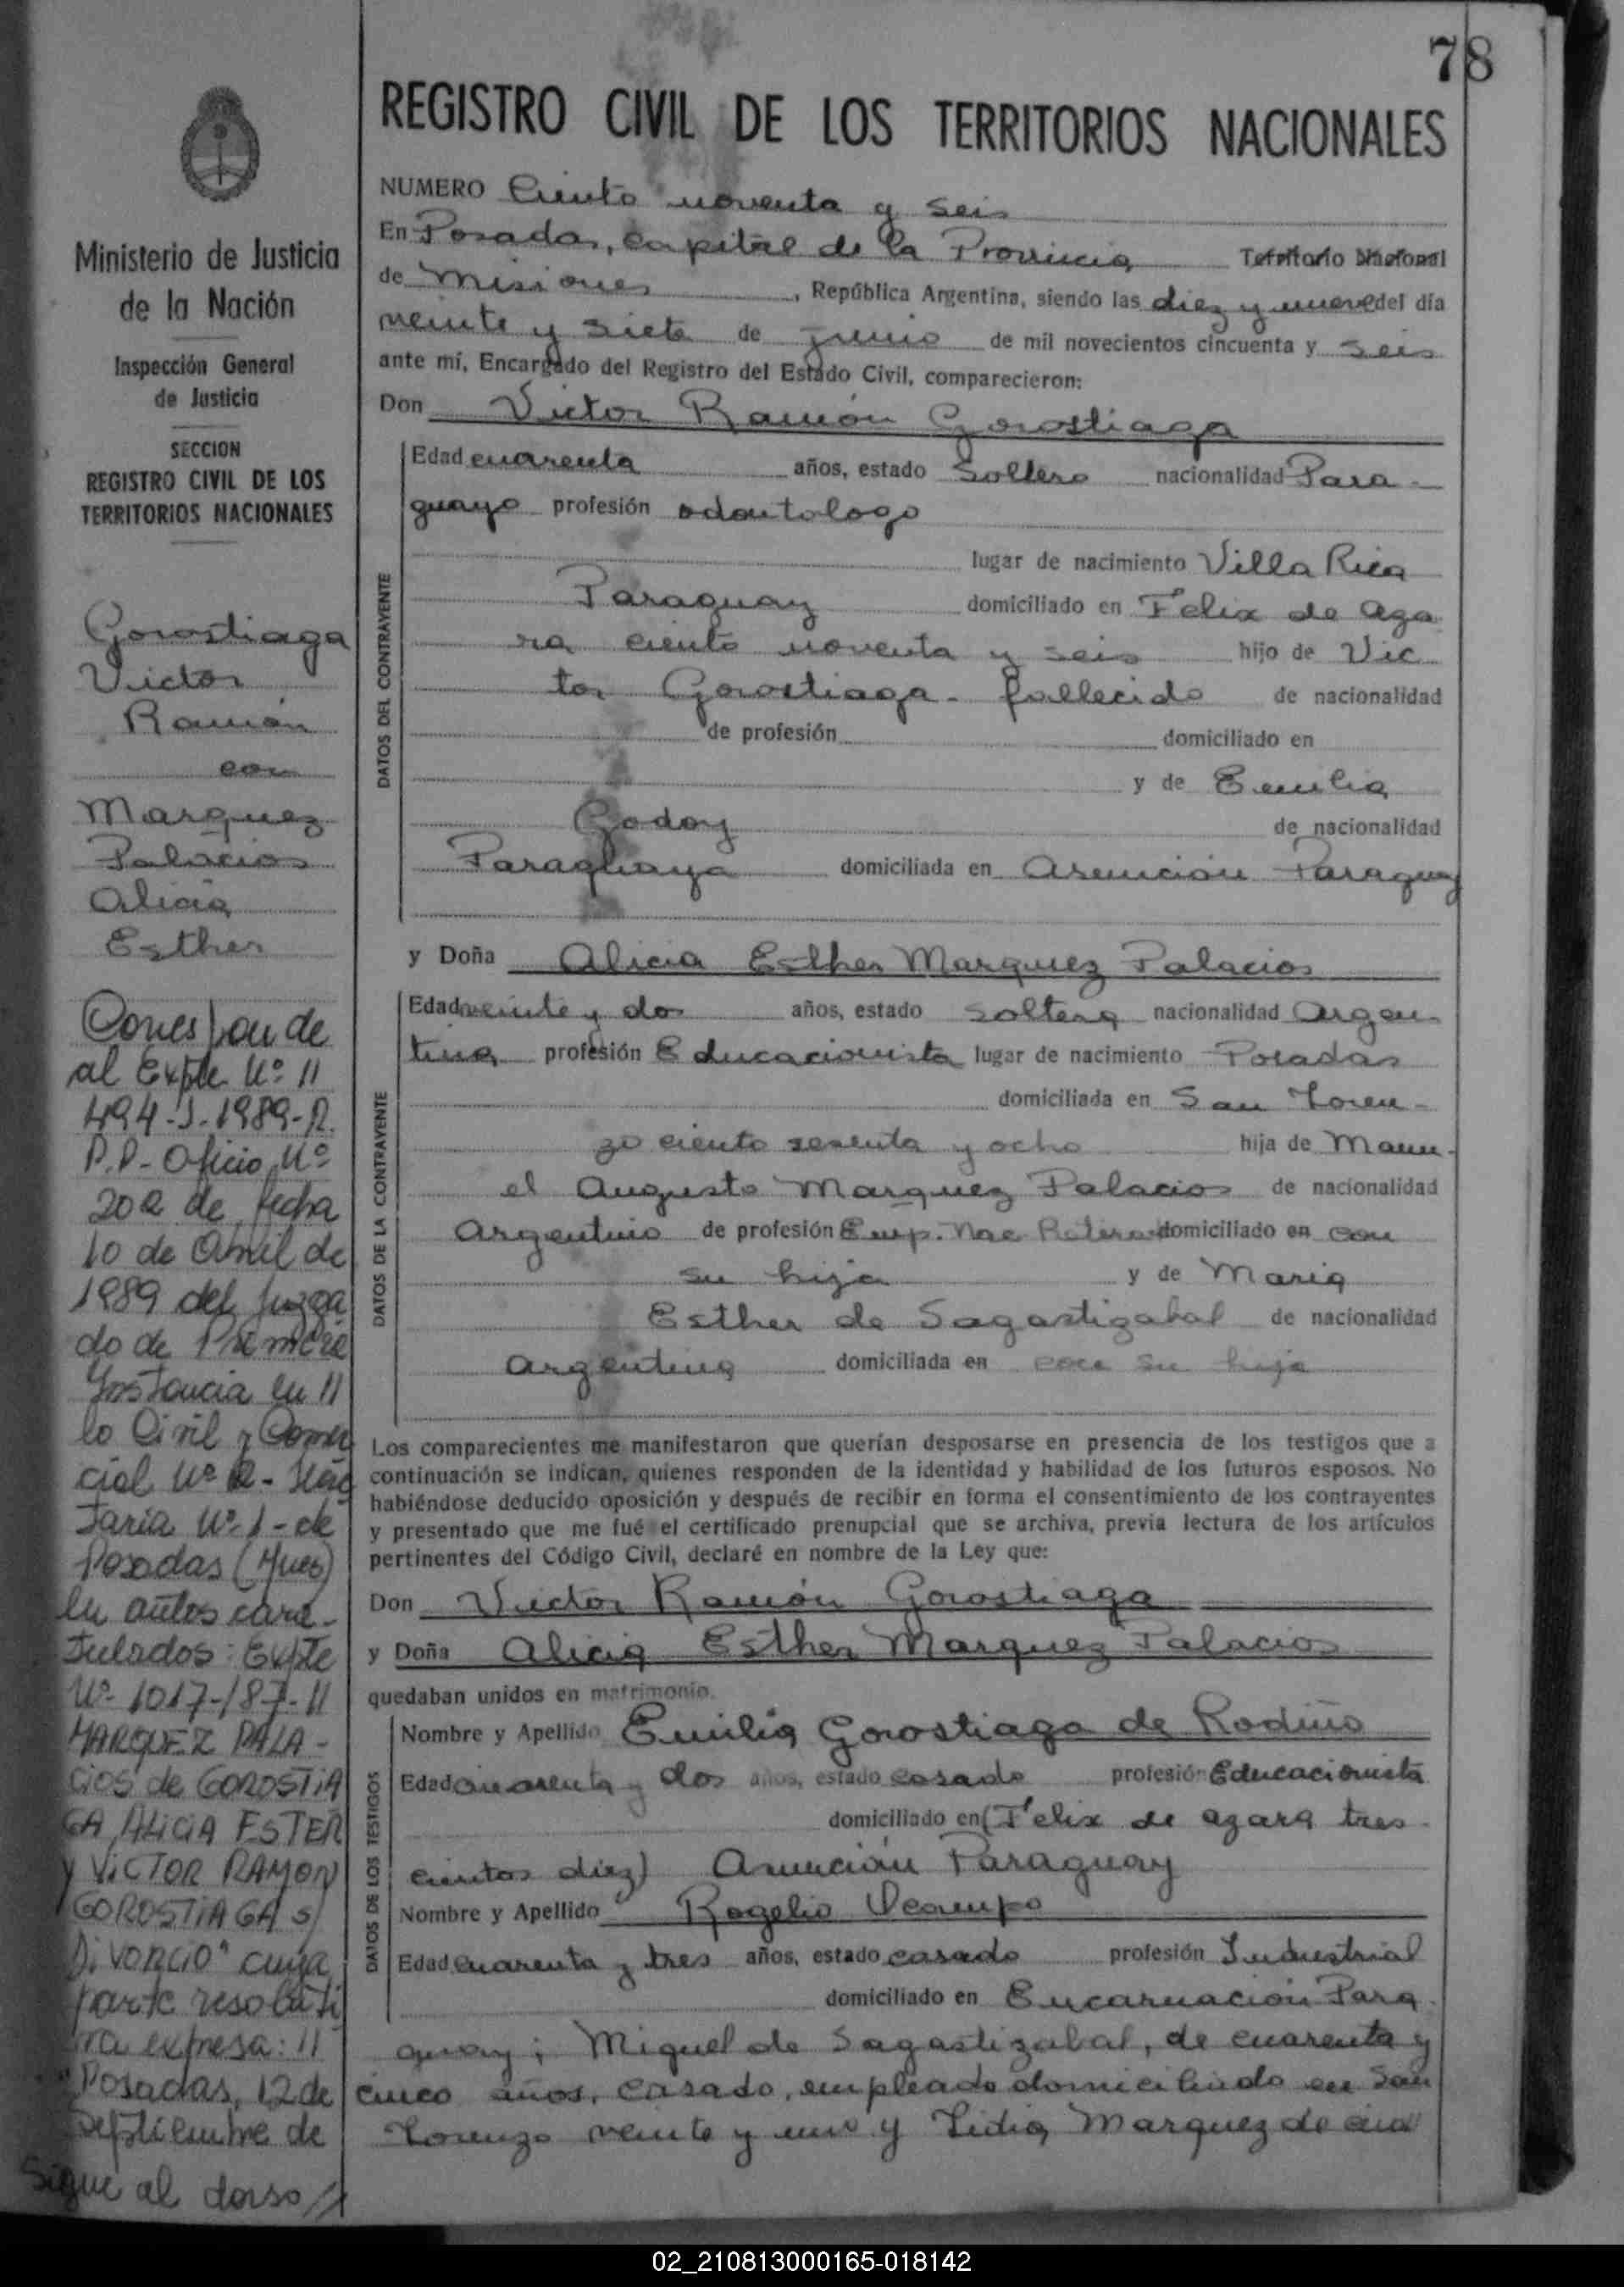 78
REGISTRO CIVIL DE LOS TERRITORIOS NACIONALES
Ministerio de Justicia
de la Nación
Inspección General
de Justicia
SECCION
REGISTRO CIVIL DE LOS
TERRITORIOS NACIONALES
Gorostiaga
Victor
Ramón
con
Marquez
Palacios
Alicia
Esther
Corresponde
al Expte. Nº 11
494-J-1989-R.
P.P- Oficio Nº
202 de fecha
10 de Abril de
1989 del Juzga
do de Primera
Instancia en //
lo Civil y Comer
cial Nº 2- Secre
taría Nº 1- de
Posadas (Mnes)
en autos cara-
tulados: Expte
Nº 1017-/87-//
MARQUEZ PALA-
CIOS de GOROSTIA
GA ALICIA ESTER
y VICTOR RAMON
GOROSTIAGA s/
DIVORCIO" cuya
parte resoluti
va expresa: //
"Posadas, 12 de
Septiembre de
Sigue al dorso //
NUMERO Ciento noventa y seis
En Posadas, capital de la Provincia Territorio Nacional
de Misiones, República Argentina, siendo las diez y nueve del día
veinte y siete de junio de mil novecientos cincuenta y seis
ante mí, Encargado del Registro del Estado Civil, comparecieron:
Don Victor Ramón Gorostiaga
DATOS DEL CONTRAYENTE
Edad cuarenta años, estado Soltero nacionalidad Para-
guayo profesión odontologo
lugar de nacimiento Villa Rica
Paraguay domiciliado en Felix de Aza
ra ciento noventa y seis hijo de Vic
tor Gorostiaga - fallecido de nacionalidad
de profesión domiciliado en
y de Emilia
Godoy de nacionalidad
Paraguaya domiciliada en Asunción Paraguay
y Doña Alicia Esther Marquez Palacios
DATOS DE LA CONTRAYENTE
Edad veinte y dos años, estado soltera nacionalidad Argen-
tina profesión Educacionista lugar de nacimiento Posadas
domiciliada en San Loren-
zo ciento sesenta y ocho hija de Manu-
el Augusto Marquez Palacios de nacionalidad
Argentino de profesión Emp. Nac Retirado domiciliado en con
su hija y de Maria
Esther de Sagastizabal de nacionalidad
argentina domiciliada en con su hija
Los comparecientes me manifestaron que querían desposarse en presencia de los testigos que a
continuación se indican, quienes responden de la identidad y habilidad de los futuros esposos. No
habiéndose deducido oposición y después de recibir en forma el consentimiento de los contrayentes
y presentado que me fué el certificado prenupcial que se archiva, previa lectura de los artículos
pertinentes del Código Civil, declaré en nombre de la Ley que:
Don Victor Ramón Gorostiaga
y Doña Alicia Esther Marquez Palacios
quedaban unidos en matrimonio.
DATOS DE LOS TESTIGOS
Nombre y Apellido Emilia Gorostiaga de Rodiño
Edad cuarenta y dos años, estado casado profesión Educacionista
domiciliado en (Felix de azara tres-
cientos diez) Asunción Paraguay
Nombre y Apellido Rogelio Ocampo
Edad cuarenta y tres años, estado casado profesión Industrial
domiciliado en Encarnación Para-
guay; Miguel de Sagastizabal, de cuarenta y
cinco años, casado, empleado domiciliado en San
Lorenzo veinte y uno y Lidia Marquez de
02_210813000165-018142